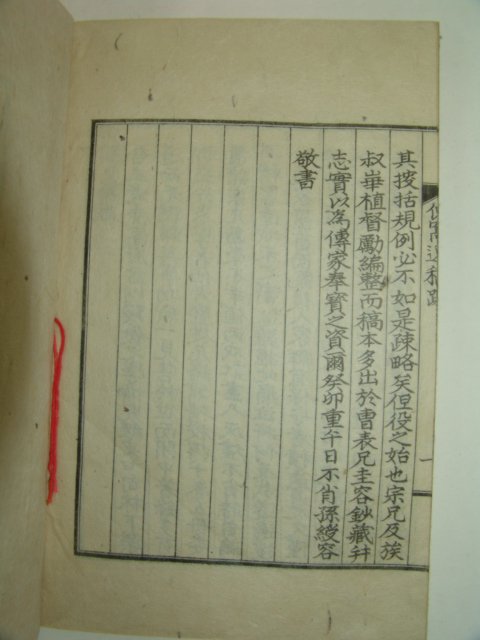 其按括規例必不如是疎略矣但役之始也宗兄及族
叔華植督勵編整而稿本多出於曺表兄圭容鈔藏幷
志實以為傳家奉寶之資爾癸卯重午日不肖孫綬容
敬書